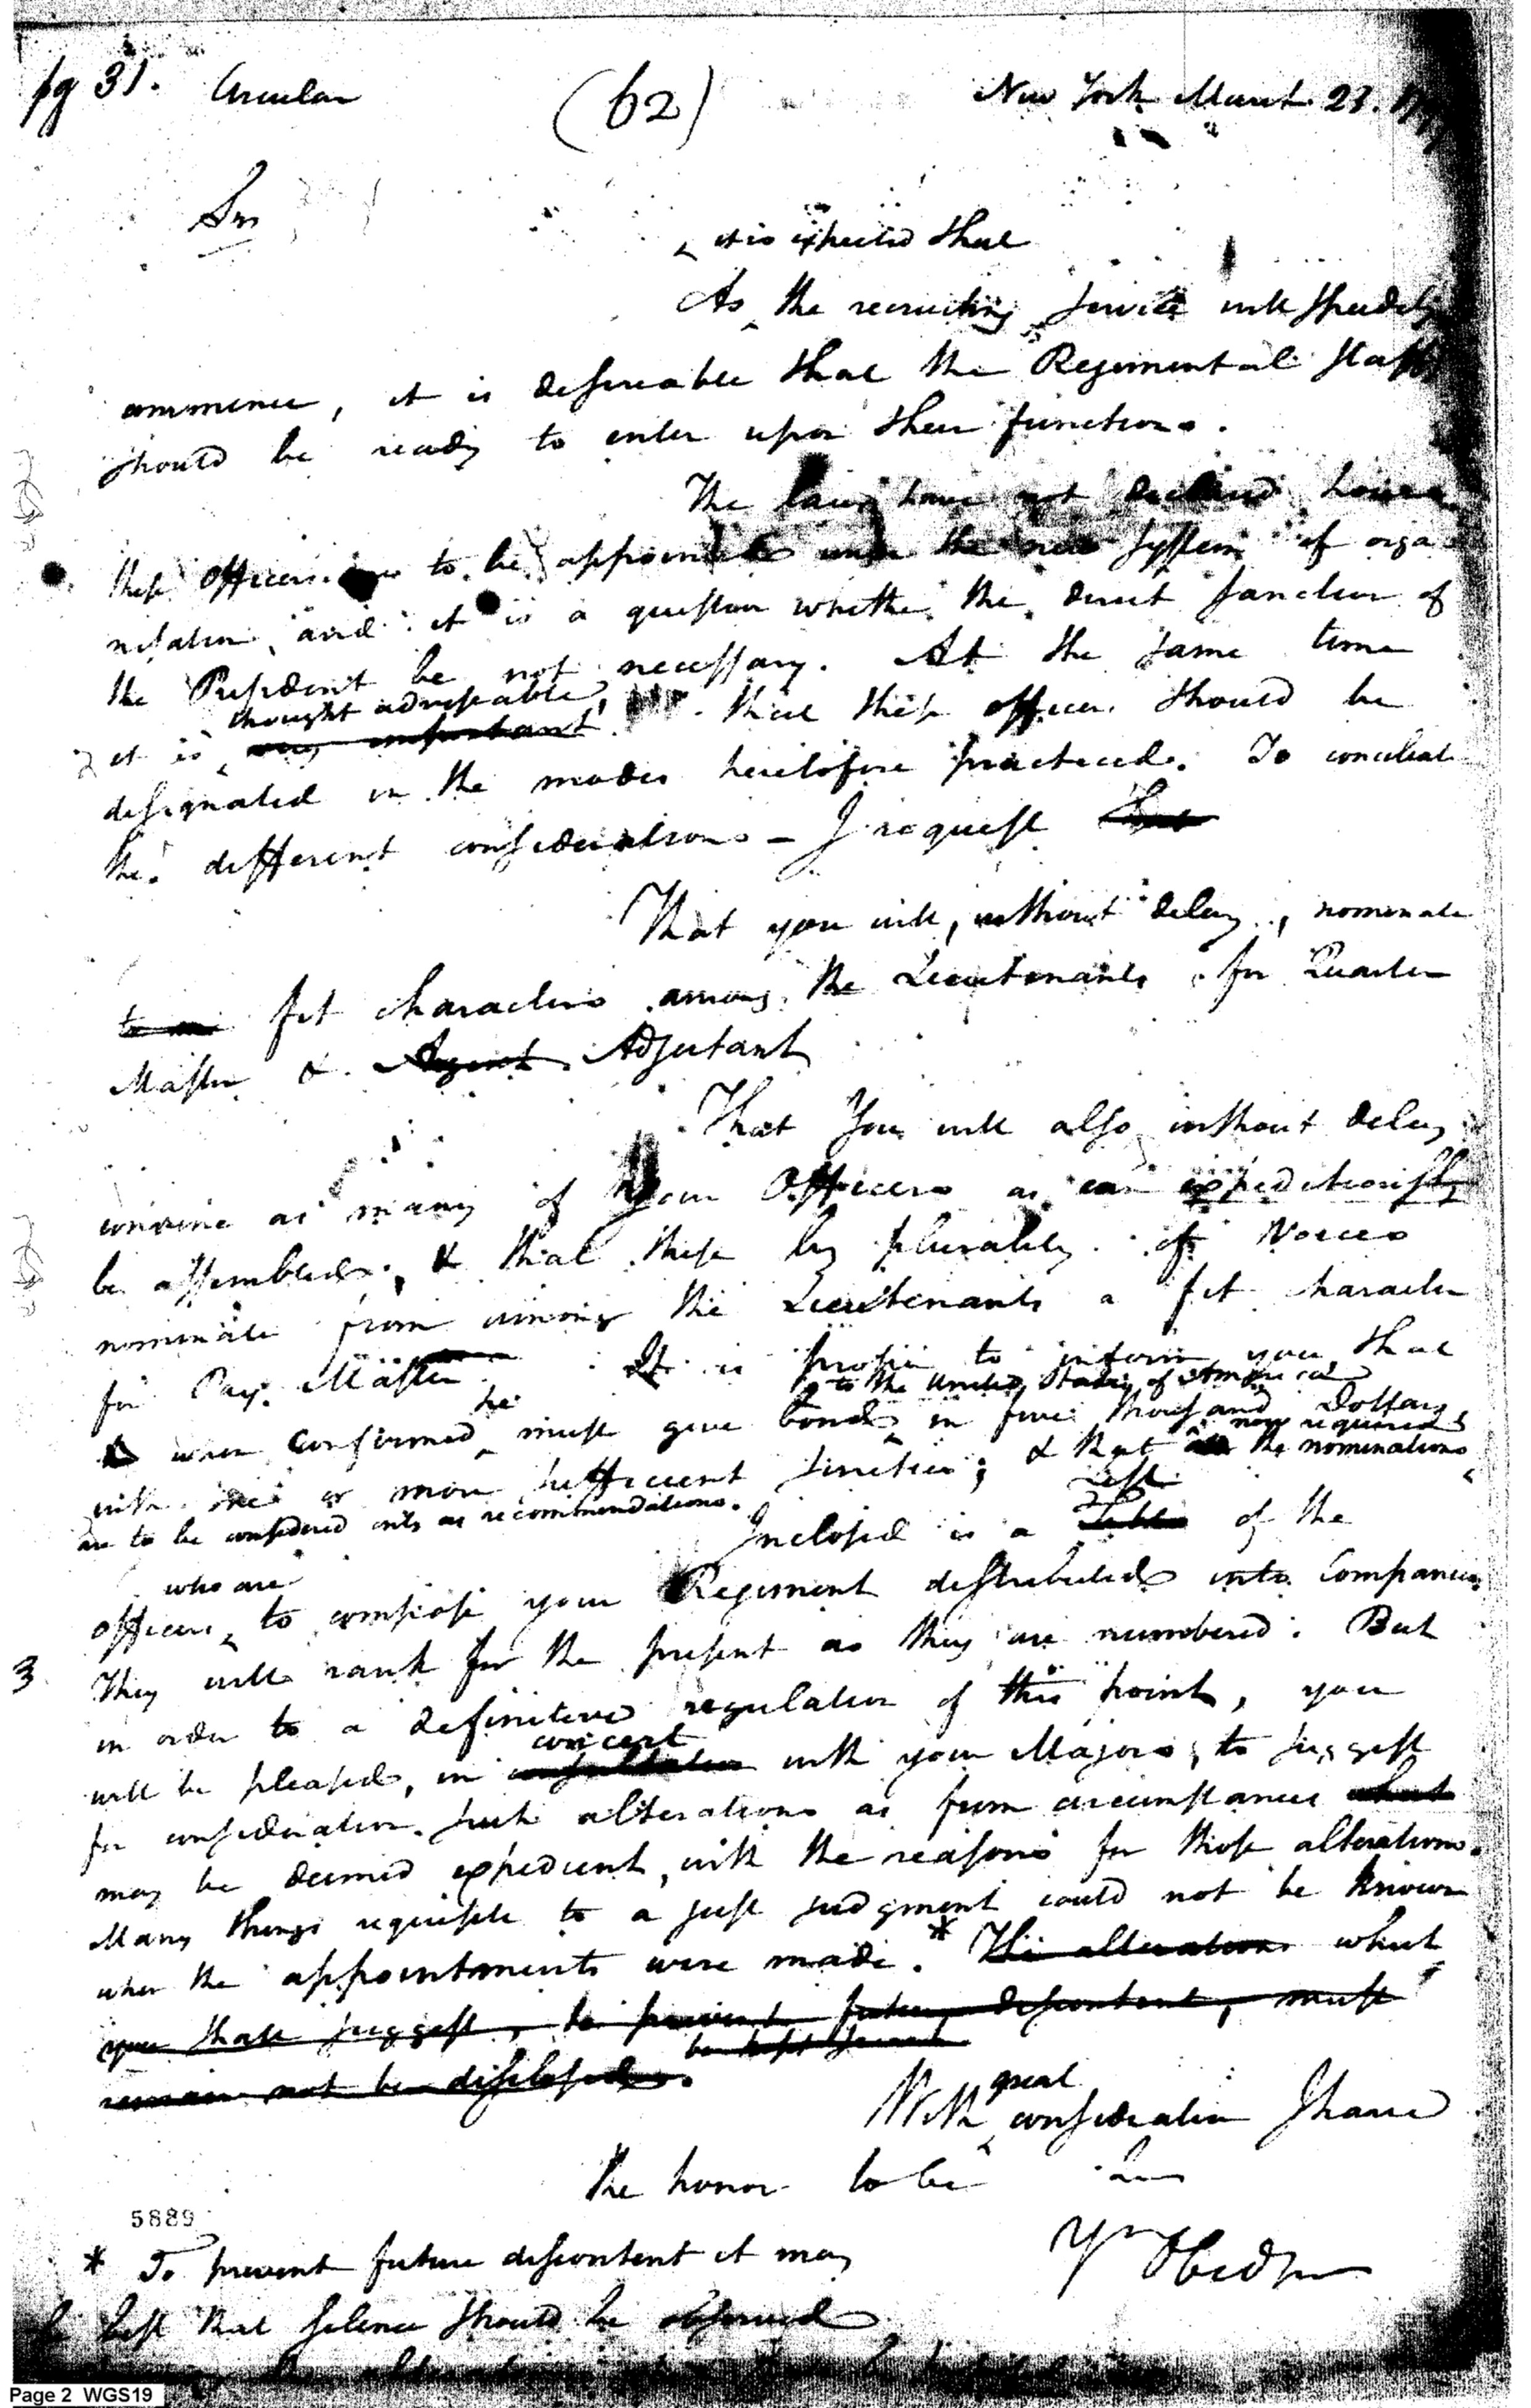 pg 31. Circular (62) New York March 23.
Sir
it is expected that
As the recruiting service will speedily
commence, it is desireable that the Regimental Staff
should be ready to enter upon their functions.
The laws have not declared how
these Officers are to be appointed under the new system of orga
nisation, and it is a question whether the direct sanction of
the President be not necessary. At the same time
thought adviseable
it is very important that these officers should be
designated in the modes heretofore practiced. To conciliate
the different considerations – I request that
That you will, without delay, nominate
to me fit characters among the Lieutenants for Quarter
Master & Agent Adjutant
That You will also without delay
convene as many of your Officers as can expeditiously
be assembled, & that these by plurality of Voices
nominate from among the Lieutenants a fit character
for Pay Master. It is proper to inform you that
he to the United States of America
when confirmed must give bond in five thousand Dollars,
now required
with one or more sufficient sureties; & that the nominations
are to be considered only as recommendations.
List
Inclosed is a Table of the
who are
officers to compose your Regiment distributed into Companies
3 They will rank for the present as they are numbered. But
in order to a definitive regulation of this point, you
concert
will be pleased, in consultation with your Majors, to suggest
for consideration such alterations as from circumstances
may be deemed expedient, with the reasons for those alterations.
Many things requisite to a just judgment could not be known
when the appointments were made. * The alterations which
you shall suggest, to prevent future discontent, must
be kept secret
remain not be disclosed.
great
With consideration I have
the honor to be Sir
Yr Obed Sr
5889
* To prevent future discontent it may
be best that silence should be observed
Page 2 WGS19